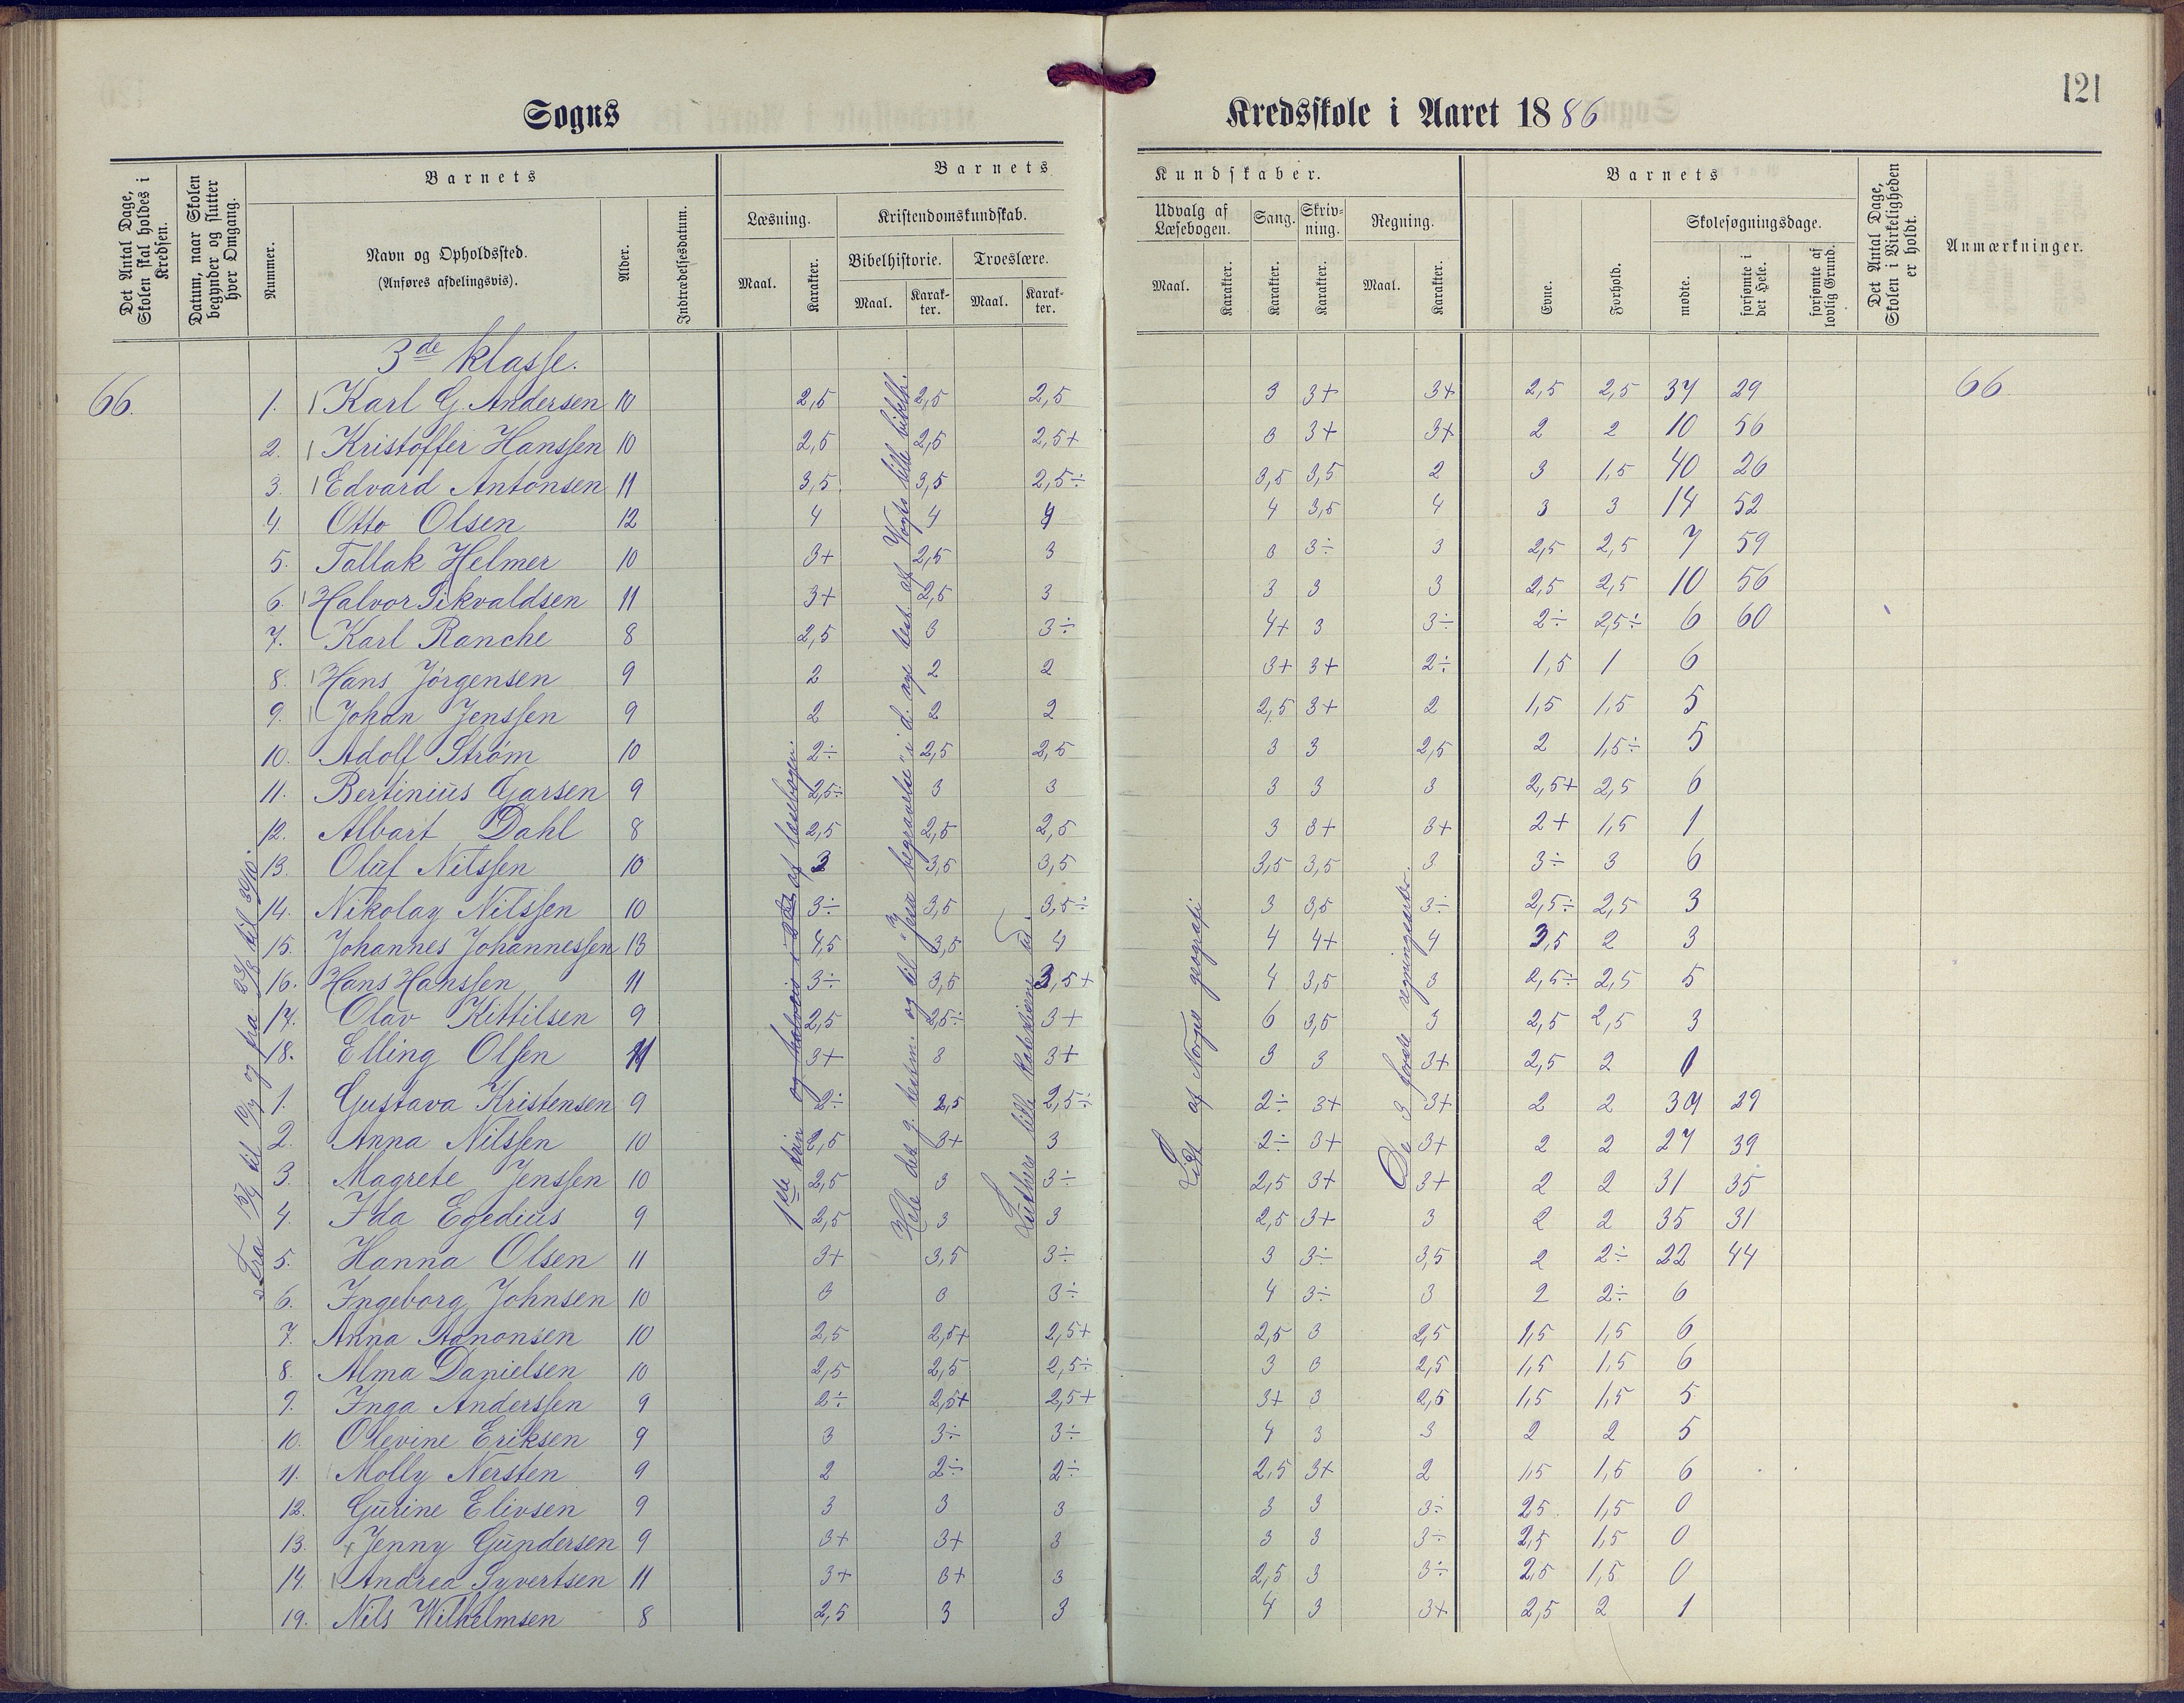 121
Sogns Kredsskole i Aaret 1886
Det Antal Dage, Skolen skal holdes i Kredsen.
Datum, naar Skolen begynder og slutter hver Omgang.
Barnets
Nummer.
Navn og Opholdssted.
(Anføres afdelingsvis).
Alder.
Indtrædelsesdatum.
Barnets Kundskaber.
Læsning.
Maal.
Karakter.
Kristendomskundskab.
Bibelhistorie.
Maal.
Karakter.
Troeslære.
Maal.
Karakter.
Udvalg af Læsebogen.
Maal.
Karakter.
Sang.
Karakter.
Skrivning.
Karakter.
Regning.
Maal.
Karakter.
Barnets
Evne.
Forhold.
Skolesøgningsdage.
mødte.
forsømte i det Hele.
forsømte af lovlig Grund.
Det Antal Dage, Skolen i Virkeligheden er holdt.
Anmærkninger.
3de klasse.
66. 1. Karl G. Andersen 10 2,5 2,5 2,5 3 3+ 3+ 2,5 2,5 37 29 66
2. Kristoffer Hanssen 10 2,5 2,5 2,5+ 3 3+ 3+ 2 2 10 56
3. Edvard Antonsen 11 3,5 3,5 2,5÷ 3,5 3,5 2 3 1,5 40 26
4. Otto Olsen 12 4 4 4 4 3,5 4 3 3 14 52
5. Tallak Helmer 10 3+ 2,5 3 3 3÷ 3 2,5 2,5 7 59
6. Halvor Sikvaldsen 11 3+ 2,5 3 3 3 3 2,5 2,5 10 56
7. Karl Ranche 8 2,5 3 3÷ 4+ 3 3÷ 2÷ 2,5÷ 6 60
8. Hans Jørgensen 9 2 2 2 3+ 3+ 2÷ 1,5 1 6
9. Johan Jenssen 9 2 2 2 2,5 3+ 2 1,5 1,5 5
10. Adolf Strøm 10 2÷ 2,5 2,5 3 3 2,5 2 1,5÷ 5
11. Bertinius Garsen 9 2,5÷ 3 3 3 3 3 2,5+ 2,5 6
12. Albart Dahl 8 2,5 2,5 2,5 3 3+ 3+ 2+ 1,5 1
13. Oluf Nilssen 10 3 3,5 3,5 3,5 3,5 3 3÷ 3 6
14. Nikolay Nilssen 10 3÷ 3,5 3,5÷ 3 3,5 3÷ 2,5÷ 2,5 3
15. Johannes Johannessen 13 4,5 3,5 4 4 4+ 4 3,5 2 3
16. Hans Hanssen 11 3÷ 3,5 3,5+ 4 3,5 3 2,5÷ 2,5 5
17. Olav Kittilsen 9 2,5 2,5÷ 3+ 6 3,5 3 2,5 2,5 3
18. Elling Olsen 11 3+ 3 3+ 3 3 3+ 2,5 2
1. Gustava Kristensen 9 2÷ 2,5 2,5÷ 2÷ 3+ 3+ 2 2 37 29
2. Anna Nilssen 10 2,5 3+ 3 2÷ 3+ 3+ 2 2 27 39
3. Magrete Jenssen 10 2,5 3 3÷ 2,5 3+ 3+ 2 2 31 35
4. Ida Egedius 9 2,5 3 3 2,5 3+ 3 2 2 35 31
5. Hanna Olsen 11 3+ 3,5 3÷ 3 3÷ 3,5 2 2÷ 22 44
6. Ingeborg Johnsen 10 3 3 3÷ 4 3÷ 3 2 2÷ 6
7. Anna Aanonsen 10 2,5 2,5+ 2,5+ 2,5 3 2,5 1,5 1,5 6
8. Alma Danielsen 10 2,5 2,5 2,5÷ 3 3 2,5 1,5 1,5 6
9. Inga Anderssen 9 2÷ 2,5+ 2,5+ 3+ 3 2,5 1,5 1,5 5
10. Olevine Eriksen 9 3 3÷ 3÷ 4 3 3 2 2 5
11. Molly Nersten 9 2 2÷ 2÷ 2,5 3+ 2 1,5 1,5 6
12. Gurine Elivsen 9 3 3 3 3 3 3÷ 2,5 1,5 0
13. Jenny Gundersen 9 3+ 3+ 3 3 3 3÷ 2,5 1,5 0
14. Andrea Syvertsen 11 3+ 3+ 3 2,5 3 3÷ 2,5 1,5 0
19. Nils Wilhelmsen 8 2,5 3 3 4 3 3+ 2,5 2 1
Fra 15/4 til 10/7 og fra 23/8 til 30/10.
1ste trin og halvveis i af læsebogen.
Hele det g. testm. og til "Jesu begravelse" i d. nye test. af Vogts lille bibelh.
Luthers lille katekisme ud.
Lidt af Norges geografi
De 3 første regningsarter.